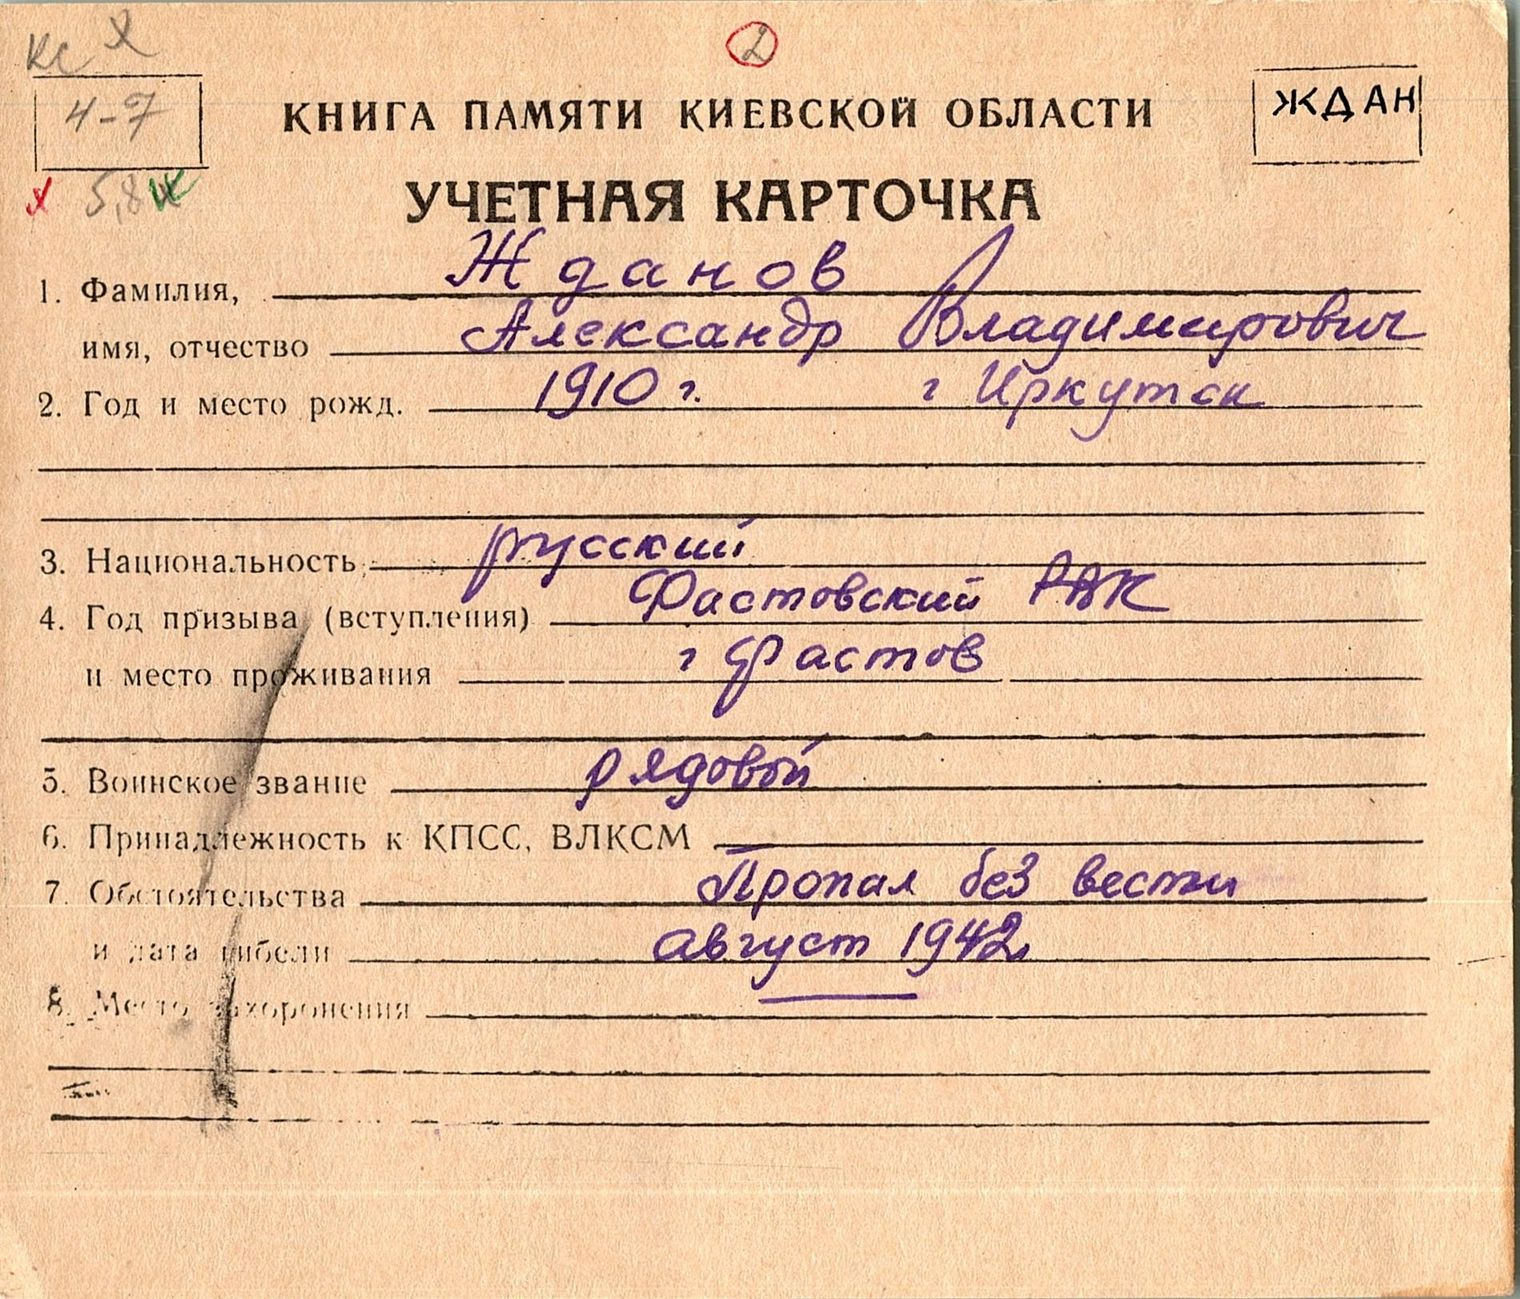 2
4-7
КНИГА ПАМЯТИ КИЕВСКОЙ ОБЛАСТИ
ЖДАН
5,8
УЧЕТНАЯ КАРТОЧКА
1. Фамилия, Жданов
имя, отчество Александр Владимирович
2. Год и место рожд. 1910 г. г Иркутск
3. Национальность русский
4. Год призыва (вступления) Фастовский РВК
и место проживания г Фастов
5. Воинское звание рядовой
6. Принадлежность к КПСС, ВЛКСМ
7. Обстоятельства Пропал без вести
и дата гибели август 1942
8. Место захоронения